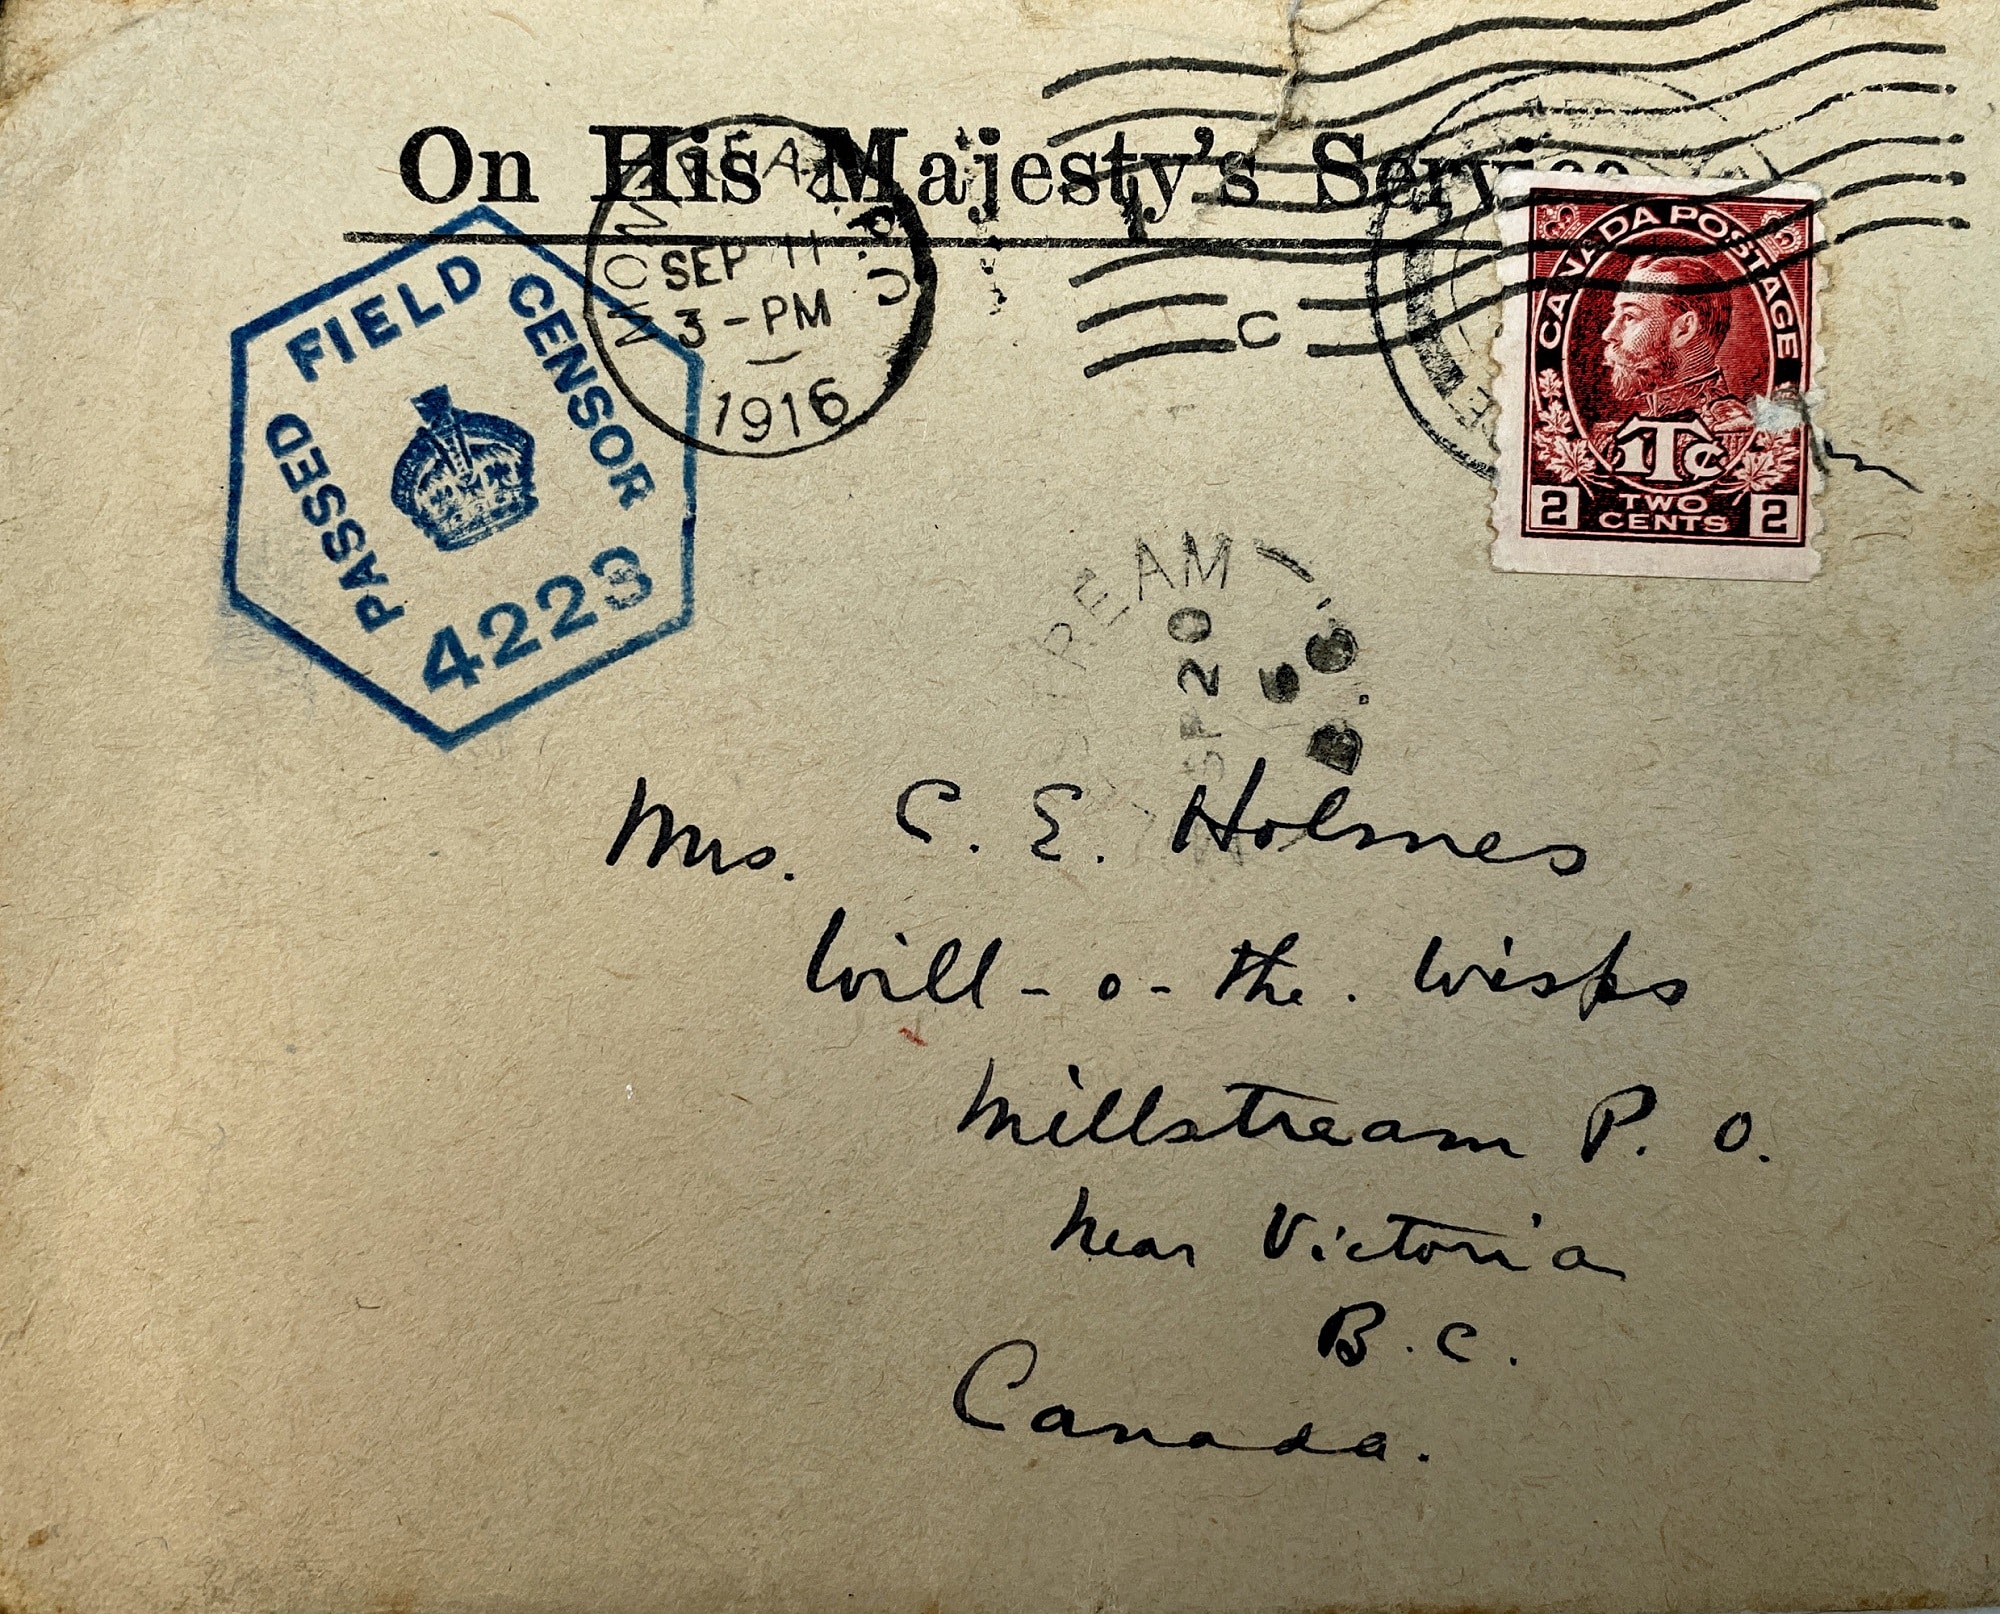 On His Majesty's Service
PASSED FIELD CENSOR
4223
MONTREAL P.Q.
SEP 11
3-PM
1916
C
CANADA POSTAGE
1Tc
2 TWO CENTS 2
REAM
SP 20
B.C.
Mrs. C. E. Holmes
Will-o-the. Wisps
Millstream P. O.
near Victoria
B. C.
Canada.